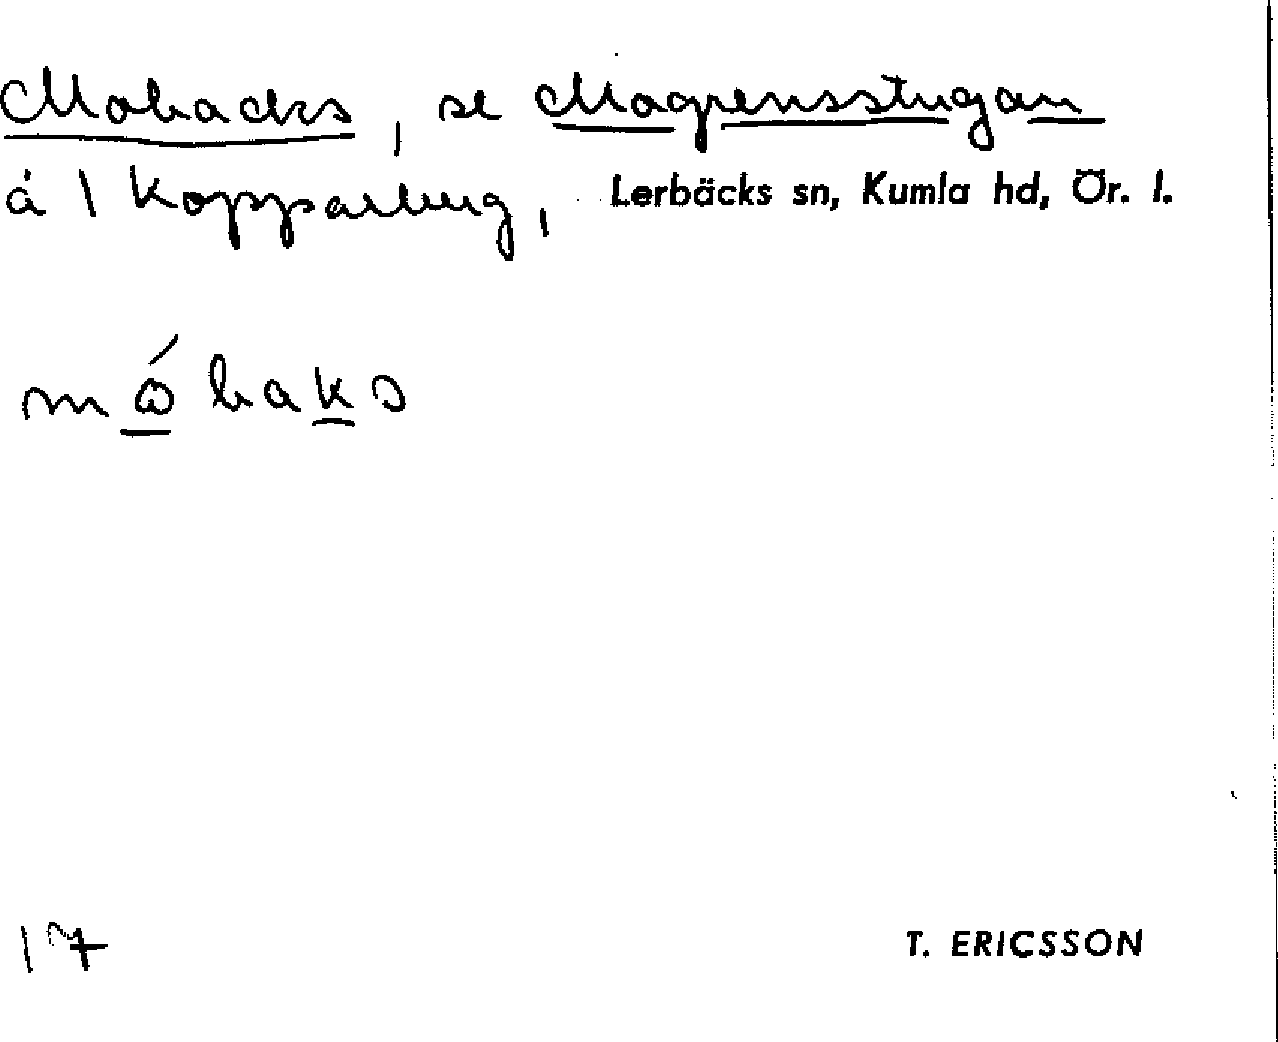 Mobacks, se Mogrensstugan
å 1 Kopparberg, Lerbäcks sn, Kumla hd, Ör. l.
17
T. ERICSSON